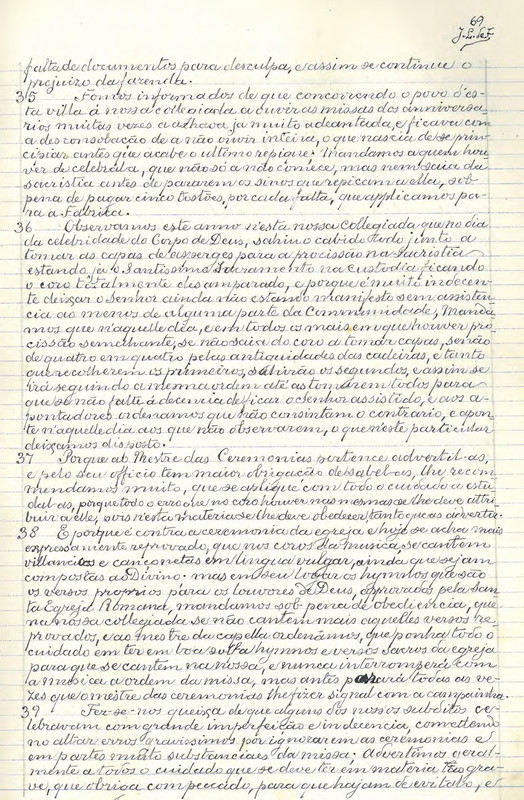 69
J. L. de F.
falta de documentos para desculpa, e assim se continue o
prejuizo da fazenda.
35 Fomos informados de que concorrendo o povo d'es-
ta villa á nossa collegiada a ouvir as missas dos anniversa-
rios muitas vezes a achava ja muito adeantada, e ficava com
a desconsolação de a não ouvir inteira, o que nascia de se prin-
cipiar antes que acabe o ultimo repique: Mandamos a quem hou-
ver de celebral-a, que não só a não comece, mas nem saia da
sacristia antes de pararem os sinos que repicam a ella, sob
pena de pagar cinco tostões, por cada falta, que applicamos pa-
ra a Fabrica.
36 Observamos este anno n'esta nossa Collegiada que no dia
da celebridade do Corpo de Deus, sahiu o cabido todo junto a
tomar as capas de asperges para a procissão na Sacristia
estando já o Santissimo Sacramento na Custodia ficando
o coro totalmente desamparado, e porque é muito indecen-
te deixar o Senhor ainda não estando manifesto sem assisten-
cia ao menos de alguma parte da Communidade, Manda-
mos que n'aquelle dia, e em todos os mais, em que houver pro-
cissão semelhante, se não saia do coro a tomar capas, senão
de quatro em quatro pelas antiguidades das cadeiras, e tanto
que recolherem os primeiros, sahirão os segundos, e assim se
irá seguindo a mesma ordem até as tomarem todos para
que se não falte á decencia de ficar o Senhor assistido, e aos a-
pontadores ordenamos que não consintam o contrario, e apon-
te n'aquelle dia aos que não observarem, o que n'este particular
deixamos disposto.
37 Porque ao Mestre das Ceremonias pertence advertil-as,
e pelo seu officio tem maior obrigação de sabel-as, lhe recom-
mendamos muito, que se aplique com todo o cuidado a estu-
dal-as, porque todo o erro que no côro houver nas mesmas se lhe deve attri-
buir a elle, pois n'esta materia se lhe deve obedecer, tanto que as advertir.
38 E porque é contra a ceremonia da egreja e hoje se acha mais
expressamente reprovado, que nos coros da musica, se cantem
villancicos e cançonetas em lingua vulgar, ainda que sejam
compostas ao Divino: mas em seu logar os hymnos que são
os versos proprios para os louvores de Deus, approvados pela San-
ta Egreja Romana, mandamos sob pena de obediencia, que
na nossa collegiada se não cantem mais aquelles versos re-
provados, e ao mestre da capella ordenâmos, que ponha todo o
cuidado em ter em boa solfa hymnos e versos sacros da egreja
para que se cantem na nossa, e nunca interromperá com
a musica a ordem da missa, mas antes parará todas as ve-
zes que o mestre das ceremonias lhe fizer signal com a campainha.
39 Fez-se-nos queixa de que alguns dos nossos subditos ce-
lebravam com grande imperfeição e indecencia, comettendo
no altar erros gravissimos por ignorarem as ceremonias e
em partes muito substanciaes da missa; advertimos geral-
mente a todos o cuidado que se deve ter em materia tão gra-
ve, que obriga com peccado, para que hajam de evital-o, e